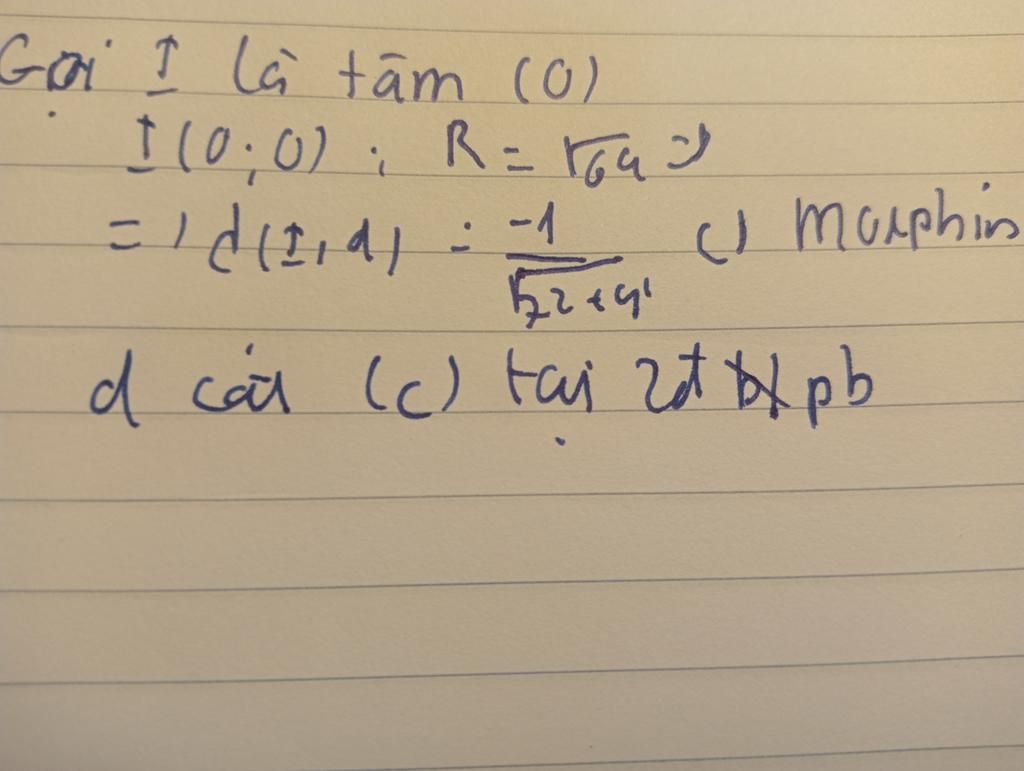 Gọi I là tâm (O)
I(0;0); R = √64 =>
=> d(I,d) = -1/√(2²+4²) () Morphin
d cắt (c) tại 2đ pb